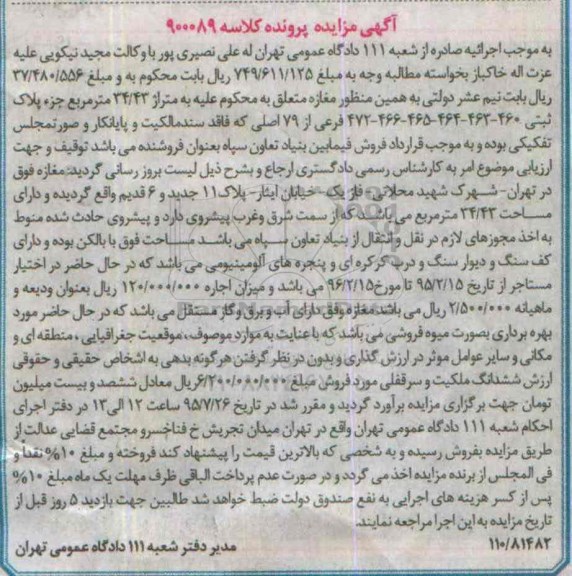 آگهی مزایده پرونده کلاسه ۹۰۰۰۸۹
به موجب اجرائیه صادره از شعبه ۱۱۱ دادگاه عمومی تهران له علی نصیری پور با وکالت مجید نیکویی علیه
عزت اله خاکباز بخواسته مطالبه وجه به مبلغ ۷۴۹/۶۱۱/۱۲۵ ریال بابت محکوم به و مبلغ ۳۷/۴۸۰/۵۵۶
ریال بابت نیم عشر دولتی به همین منظور مغازه متعلق به محکوم علیه به متراژ ۳۴/۴۳ مترمربع جزء پلاک
ثبتی ۴۶۰-۴۶۳-۴۶۴-۴۶۵-۴۶۶-۴۷۲ فرعی از ۷۹ اصلی که فاقد سندمالکیت و پایانکار و صورتمجلس
تفکیکی بوده و به موجب قرارداد فروش فیمابین بنیاد تعاون سپاه بعنوان فروشنده می باشد توقیف و جهت
ارزیابی موضوع امر به کارشناس رسمی دادگستری ارجاع و بشرح ذیل لیست بروز رسانی گردید: مغازه فوق
در تهران- شهرک شهید محلاتی- فاز یک- خیابان ایثار- پلاک ۱۱ جدید و ۶ قدیم واقع گردیده و دارای
مساحت ۳۴/۴۳ مترمربع می باشد که از سمت شرق وغرب پیشروی دارد و پیشروی حادث شده منوط
به اخذ مجوزهای لازم در نقل و انتقال از بنیاد تعاون سپاه می باشد مساحت فوق با بالکن بوده و دارای
کف سنگ و دیوار سنگ و درب کرکره ای و پنجره های آلومینیومی می باشد که در حال حاضر در اختیار
مستاجر از تاریخ ۹۵/۲/۱۵ تا مورخ ۹۶/۲/۱۵ می باشد و میزان اجاره ۱۲۰/۰۰۰/۰۰۰ ریال بعنوان ودیعه و
ماهیانه ۲/۵۰۰/۰۰۰ ریال می باشد مغازه وفق دارای آب و برق و گاز مستقل می باشد که در حال حاضر مورد
بهره برداری بصورت میوه فروشی می باشد که با عنایت به موارد موصوف، موقعیت جغرافیایی، منطقه ای و
مکانی و سایر عوامل موثر در ارزش گذاری و بدون در نظر گرفتن هرگونه بدهی به اشخاص حقیقی و حقوقی
ارزش ششدانگ ملکیت و سرقفلی مورد فروش مبلغ ۶/۲۰۰/۰۰۰/۰۰۰ ریال معادل ششصد و بیست میلیون
تومان جهت برگزاری مزایده برآورد گردید و مقرر شد در تاریخ ۹۵/۷/۲۶ ساعت ۱۲ الی ۱۳ در دفتر اجرای
احکام شعبه ۱۱۱ دادگاه عمومی تهران واقع در تهران میدان تجریش خ فناخسرو مجتمع قضایی عدالت از
طریق مزایده بفروش رسیده و به شخصی که بالاترین قیمت را پیشنهاد کند فروخته و مبلغ ۱۰% نقدا و
فی المجلس از برنده مزایده اخذ می گردد و در صورت عدم پرداخت الباقی ظرف مهلت یک ماه مبلغ ۱۰%
پس از کسر هزینه های اجرایی به نفع صندوق دولت ضبط خواهد شد طالبین جهت بازدید ۵ روز قبل از
تاریخ مزایده به این اجرا مراجعه نمایند.
۱۱۰/۸۱۴۸۲ مدیر دفتر شعبه ۱۱۱ دادگاه عمومی تهران